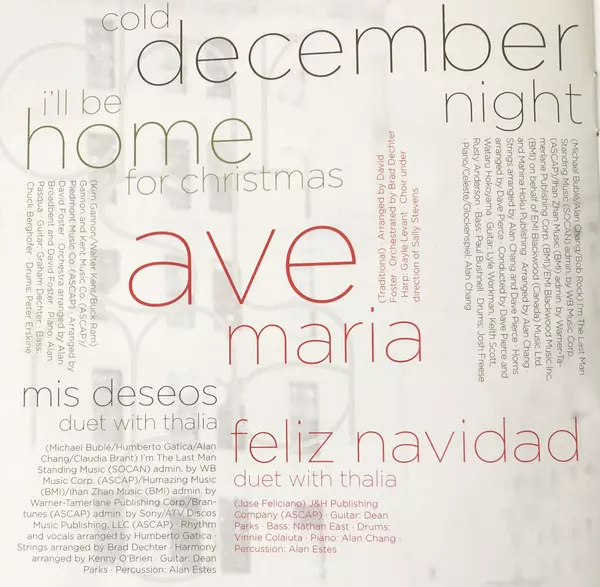 cold
december
night
(Michael Bublé/Alan Chang/Bob Rock) I'm The Last Man
Standing Music (SOCAN) admin. by WB Music Corp.
(ASCAP)/Ihan Zhan Music (BMI) admin. by Warner-Ta-
merlane Publishing Corp. (BMI)/EMI Blackwood Music Inc.
(BMI) on behalf of EMI Blackwood (Canada) Music Ltd.
and Mahina Hoku Publishing · Arranged by Alan Chang ·
Strings arranged by Alan Chang and Dave Pierce · Horns
arranged by Dave Pierce · Conducted by Dave Pierce and
Wataru Hokoyama · Guitar: Lyle Workman, Keith Scott,
Rusty Anderson · Bass: Paul Bushnell · Drums: Josh Freese
· Piano/Celeste/Glockenspiel: Alan Chang
i'll be
home
for christmas
(Kim Gannon/Walter Kent/Buck Ram)
Gannon and Kent Music Co. (ASCAP)/
Piedmont Music Co. (ASCAP) · Arranged by
David Foster · Orchestra arranged by Alan
Broadbent and David Foster · Piano: Alan
Pasqua · Guitar: Graham Dechter · Bass:
Chuck Berghofer · Drums: Peter Erskine
ave
maria
(Traditional) · Arranged by David
Foster · Orchestrated by Brad Dechter
· Harp: Gayle Levant · Choir under
direction of Sally Stevens
mis deseos
duet with thalia
(Michael Bublé/Humberto Gatica/Alan
Chang/Claudia Brant) I'm The Last Man
Standing Music (SOCAN) admin. by WB
Music Corp. (ASCAP)/Humazing Music
(BMI)/Ihan Zhan Music (BMI) admin. by
Warner-Tamerlane Publishing Corp./Bran-
tunes (ASCAP) admin. by Sony/ATV Discos
Music Publishing, LLC (ASCAP) · Rhythm
and vocals arranged by Humberto Gatica ·
Strings arranged by Brad Dechter · Harmony
arranged by Kenny O'Brien · Guitar: Dean
Parks · Percussion: Alan Estes
feliz navidad
duet with thalia
(Jose Feliciano) J&H Publishing
Company (ASCAP) · Guitar: Dean
Parks · Bass: Nathan East · Drums:
Vinnie Colaiuta · Piano: Alan Chang ·
Percussion: Alan Estes